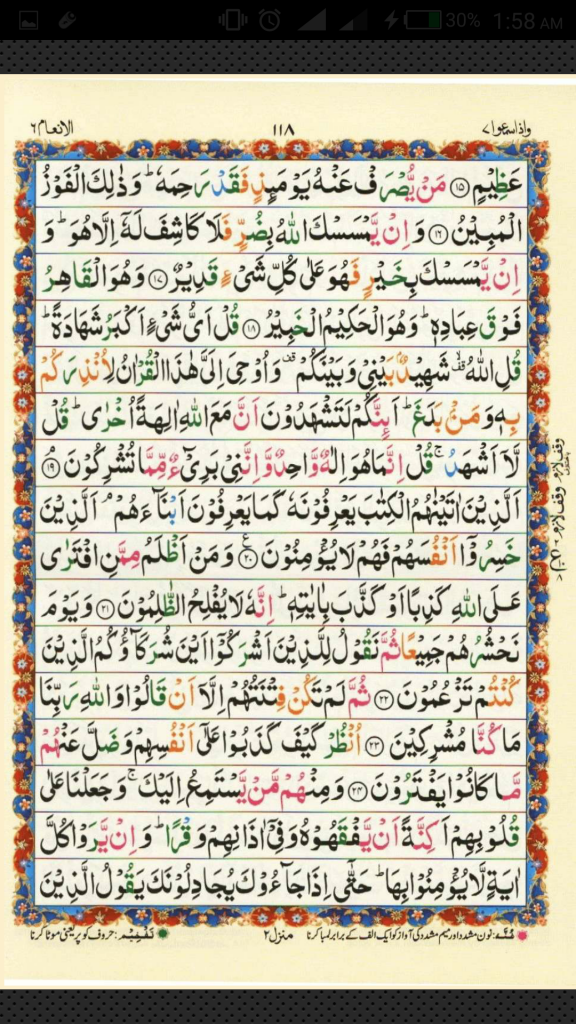 30% 1:58 AM
واذاسمعوا ۷ ۱۱۸ الانعام ۶
عَظِيْمٍ ۝۱۵ مَنْ يُّصْرَفْ عَنْهُ يَوْمَىِٕذٍ فَقَدْ رَحِمَهٗ ؕ وَذٰلِكَ الْفَوْزُ
الْمُبِيْنُ ۝۱۶ وَاِنْ يَّمْسَسْكَ اللّٰهُ بِضُرٍّ فَلَا كَاشِفَ لَهٗۤ اِلَّا هُوَ ؕ وَ
اِنْ يَّمْسَسْكَ بِخَيْرٍ فَهُوَ عَلٰى كُلِّ شَىْءٍ قَدِيْرٌ ۝۱۷ وَهُوَ الْقَاهِرُ
فَوْقَ عِبَادِهٖ ؕ وَهُوَ الْحَكِيْمُ الْخَبِيْرُ ۝۱۸ قُلْ اَىُّ شَىْءٍ اَكْبَرُ شَهَادَةً ؕ
قُلِ اللّٰهُ ۙقف شَهِيْدٌۢ بَيْنِىْ وَبَيْنَكُمْ قف وَاُوْحِىَ اِلَىَّ هٰذَا الْقُرْاٰنُ لِاُنْذِرَكُمْ
بِهٖ وَمَنْۢ بَلَغَ ؕ اَىِٕنَّكُمْ لَتَشْهَدُوْنَ اَنَّ مَعَ اللّٰهِ اٰلِهَةً اُخْرٰى ؕ قُلْ
لَّاۤ اَشْهَدُ ۚ قُلْ اِنَّمَا هُوَ اِلٰهٌ وَّاحِدٌ وَّاِنَّنِىْ بَرِىْٓءٌ مِّمَّا تُشْرِكُوْنَ ۝۱۹
اَلَّذِيْنَ اٰتَيْنٰهُمُ الْكِتٰبَ يَعْرِفُوْنَهٗ كَمَا يَعْرِفُوْنَ اَبْنَآءَهُمْ ۘ اَلَّذِيْنَ
خَسِرُوْۤا اَنْفُسَهُمْ فَهُمْ لَا يُؤْمِنُوْنَ ۝۲۰ وَمَنْ اَظْلَمُ مِمَّنِ افْتَرٰى
عَلَى اللّٰهِ كَذِبًا اَوْ كَذَّبَ بِاٰيٰتِهٖ ؕ اِنَّهٗ لَا يُفْلِحُ الظّٰلِمُوْنَ ۝۲۱ وَيَوْمَ
نَحْشُرُهُمْ جَمِيْعًا ثُمَّ نَقُوْلُ لِلَّذِيْنَ اَشْرَكُوْۤا اَيْنَ شُرَكَآؤُكُمُ الَّذِيْنَ
كُنْتُمْ تَزْعُمُوْنَ ۝۲۲ ثُمَّ لَمْ تَكُنْ فِتْنَتُهُمْ اِلَّاۤ اَنْ قَالُوْا وَاللّٰهِ رَبِّنَا
مَا كُنَّا مُشْرِكِيْنَ ۝۲۳ اُنْظُرْ كَيْفَ كَذَبُوْا عَلٰۤى اَنْفُسِهِمْ وَضَلَّ عَنْهُمْ
مَّا كَانُوْا يَفْتَرُوْنَ ۝۲۴ وَمِنْهُمْ مَّنْ يَّسْتَمِعُ اِلَيْكَ ۚ وَجَعَلْنَا عَلٰى
قُلُوْبِهِمْ اَكِنَّةً اَنْ يَّفْقَهُوْهُ وَفِىْۤ اٰذَانِهِمْ وَقْرًا ؕ وَاِنْ يَّرَوْا كُلَّ
اٰيَةٍ لَّا يُؤْمِنُوْا بِهَا ؕ حَتّٰٓى اِذَا جَآءُوْكَ يُجَادِلُوْنَكَ يَقُوْلُ الَّذِيْنَ
غنّہ: نون مشدد اور میم مشدد کی آواز کو ایک الف کے برابر لمبا کرنا منزل ۲ تفخیم: حروف کو پُر یعنی موٹا کرنا